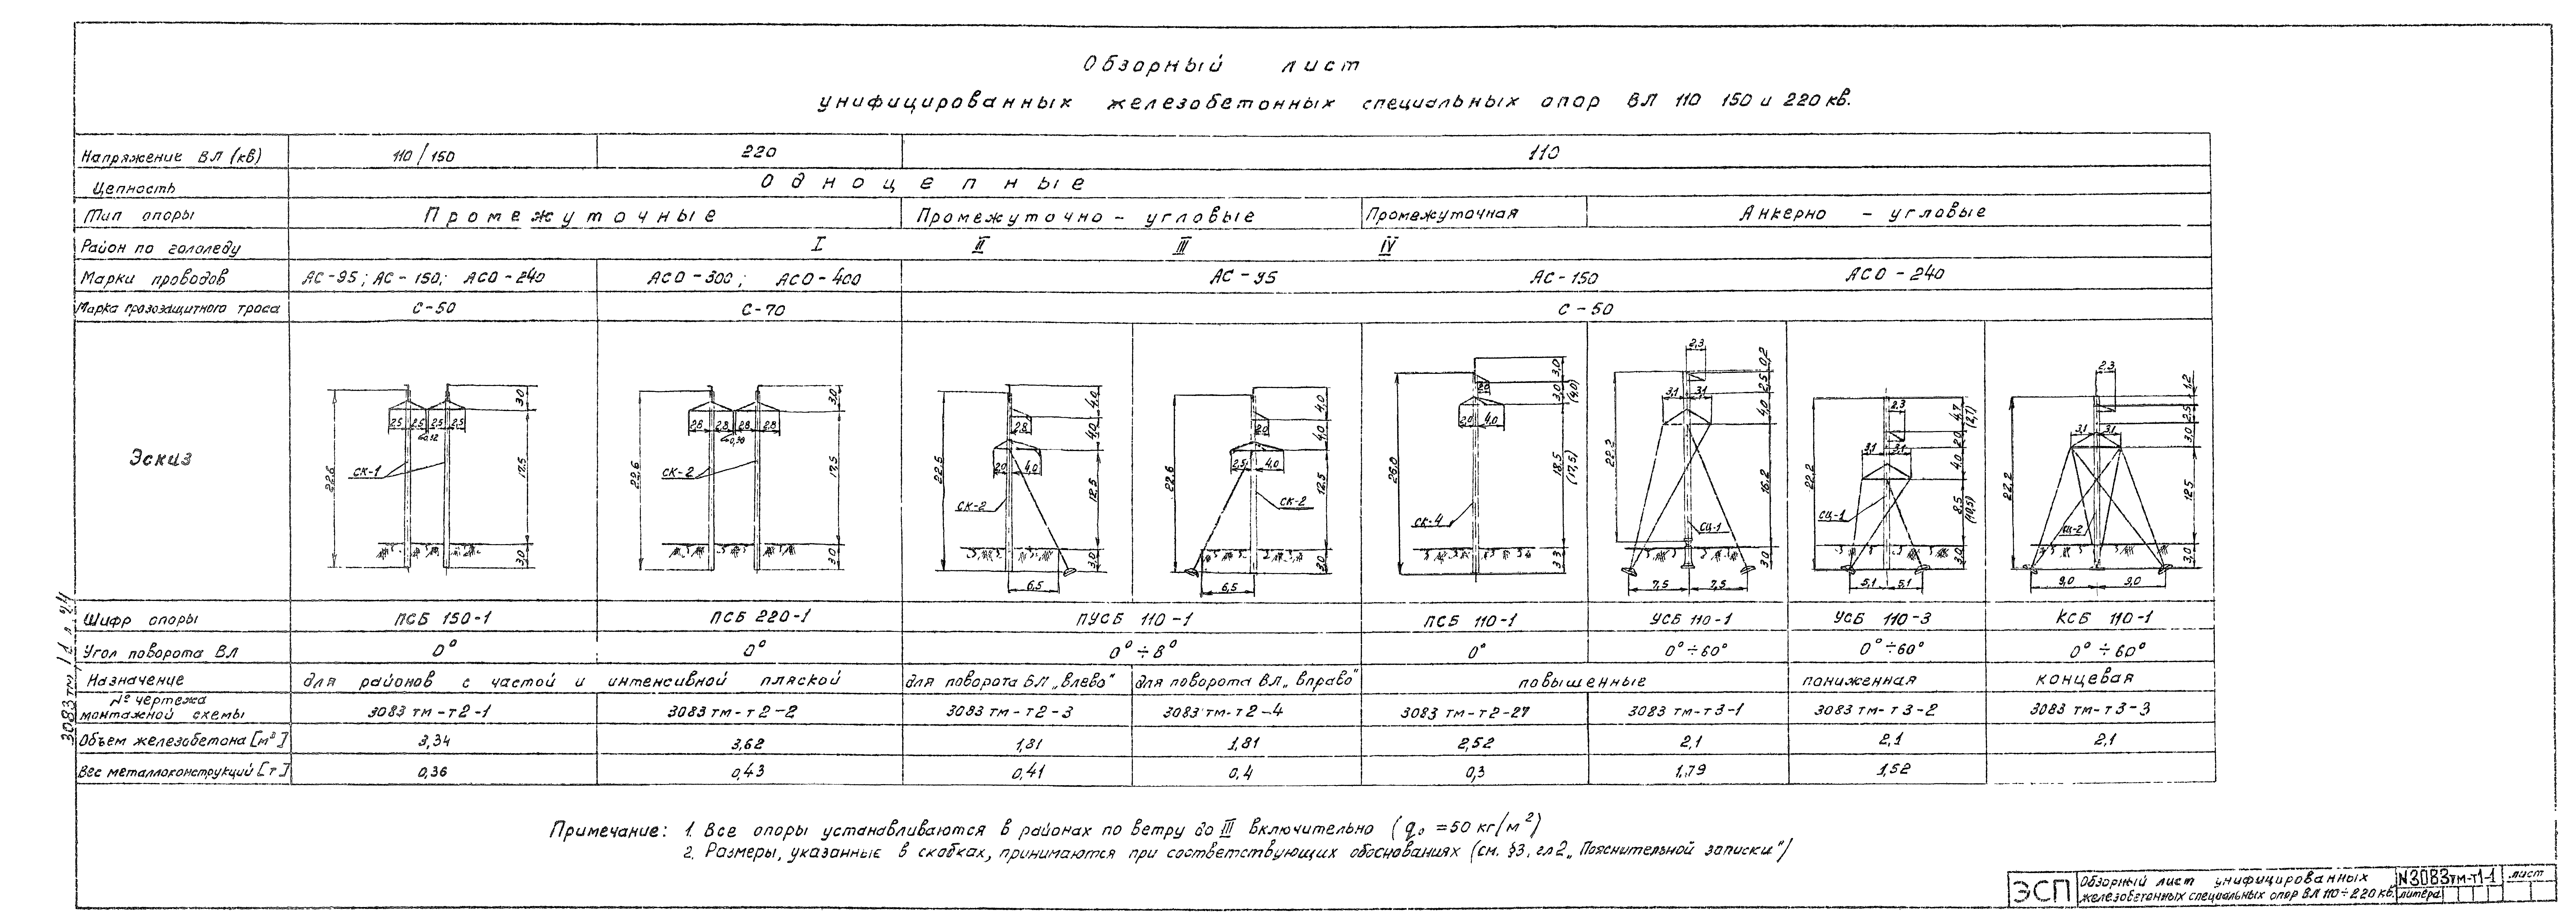 Обзорный лист
унифицированных железобетонных специальных опор ВЛ 110 150 и 220 кв.
Напряжение ВЛ (кВ) 110/150 220 110
Цепность Одноцепные
Тип опоры Промежуточные Промежуточно-угловые Промежуточная Анкерно-угловые
Район по гололеду I II III IV
Марки проводов АС-95; АС-150; АСО-240 АСО-300; АСО-400 АС-95 АС-150 АСО-240
Марка грозозащитного троса С-50 С-70 С-50
Эскиз
22,6 2,5 2,5 2,5 2,5 3,0 17,5 3,0 СК-1
22,6 2,8 2,8 2,8 3,0 17,5 3,0 СК-2
2,8 2,0 4,0 4,0 4,0 12,5 3,0 СК-2 6,5
22,6 2,0 2,5 4,0 4,0 4,0 12,5 3,0 СК-2 6,5
26,0 2,0 2,0 4,0 3,0 3,0 (4,0) 18,5 (17,5) 3,3 СК-4
22,2 2,3 3,1 3,1 0,2 2,5 4,0 16,2 3,0 СЦ-1 7,5 7,5
22,2 2,3 3,1 3,1 4,7 (2,7) 2,0 4,0 8,5 (10,5) 3,0 СЦ-1 5,1 5,1
22,2 2,3 3,1 3,1 1,2 2,5 3,0 12,5 3,0 СЦ-2 9,0 9,0
Шифр опоры ПСБ 150-1 ПСБ 220-1 ПУСБ 110-1 ПСБ 110-1 УСБ 110-1 УСБ 110-3 КСБ 110-1
Угол поворота ВЛ 0° 0° 0°÷8° 0° 0°÷60° 0°÷60° 0°÷60°
Назначение для районов с частой и интенсивной пляской для поворота ВЛ „влево" для поворота ВЛ „вправо" повышенные пониженная концевая
№ чертежа
монтажной схемы 3083 тм-т2-1 3083 тм-т2-2 3083 тм-т2-3 3083 тм-т2-4 3083 тм-т2-27 3083 тм-т3-1 3083 тм-т3-2 3083 тм-т3-3
Объем железобетона [м³] 3,34 3,62 1,81 1,81 2,52 2,1 2,1 2,1
Вес металлоконструкций [т] 0,36 0,43 0,41 0,4 0,3 1,79 1,52
Примечание: 1. Все опоры устанавливаются в районах по ветру до III включительно (q₀ = 50 кг/м²)
2. Размеры, указанные в скобках, принимаются при соответствующих обоснованиях (см. §3, гл2 „Пояснительной записки")
ЭСП
Обзорный лист унифицированных
железобетонных специальных опор ВЛ 110÷220 кв.
N3083тм-т1-1 лист
литера